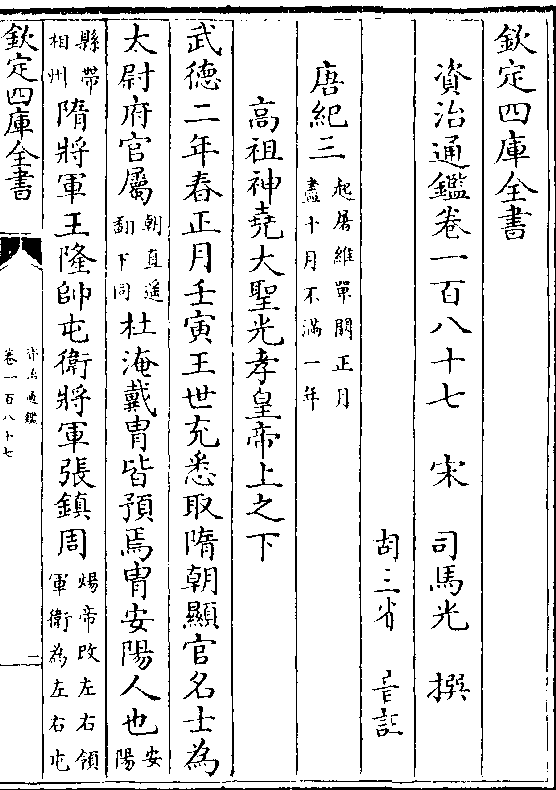 欽定四庫全書
資治通鑑卷一百八十七　宋　司馬光　撰
胡三省　音註
唐紀三起屠維單閼正月盡十月不滿一年
高祖神堯大聖光孝皇帝上之下
武德二年春正月壬寅王世充悉取隋朝顯官名士為
太尉府官屬朝直遥翻下同杜淹戴胄皆預焉胄安陽人也安陽
縣帶相州隋將軍王隆帥屯衛將軍張鎮周煬帝改左右領軍衛為左右屯
欽定四庫全書
資治通鑑
卷一百八十七
二